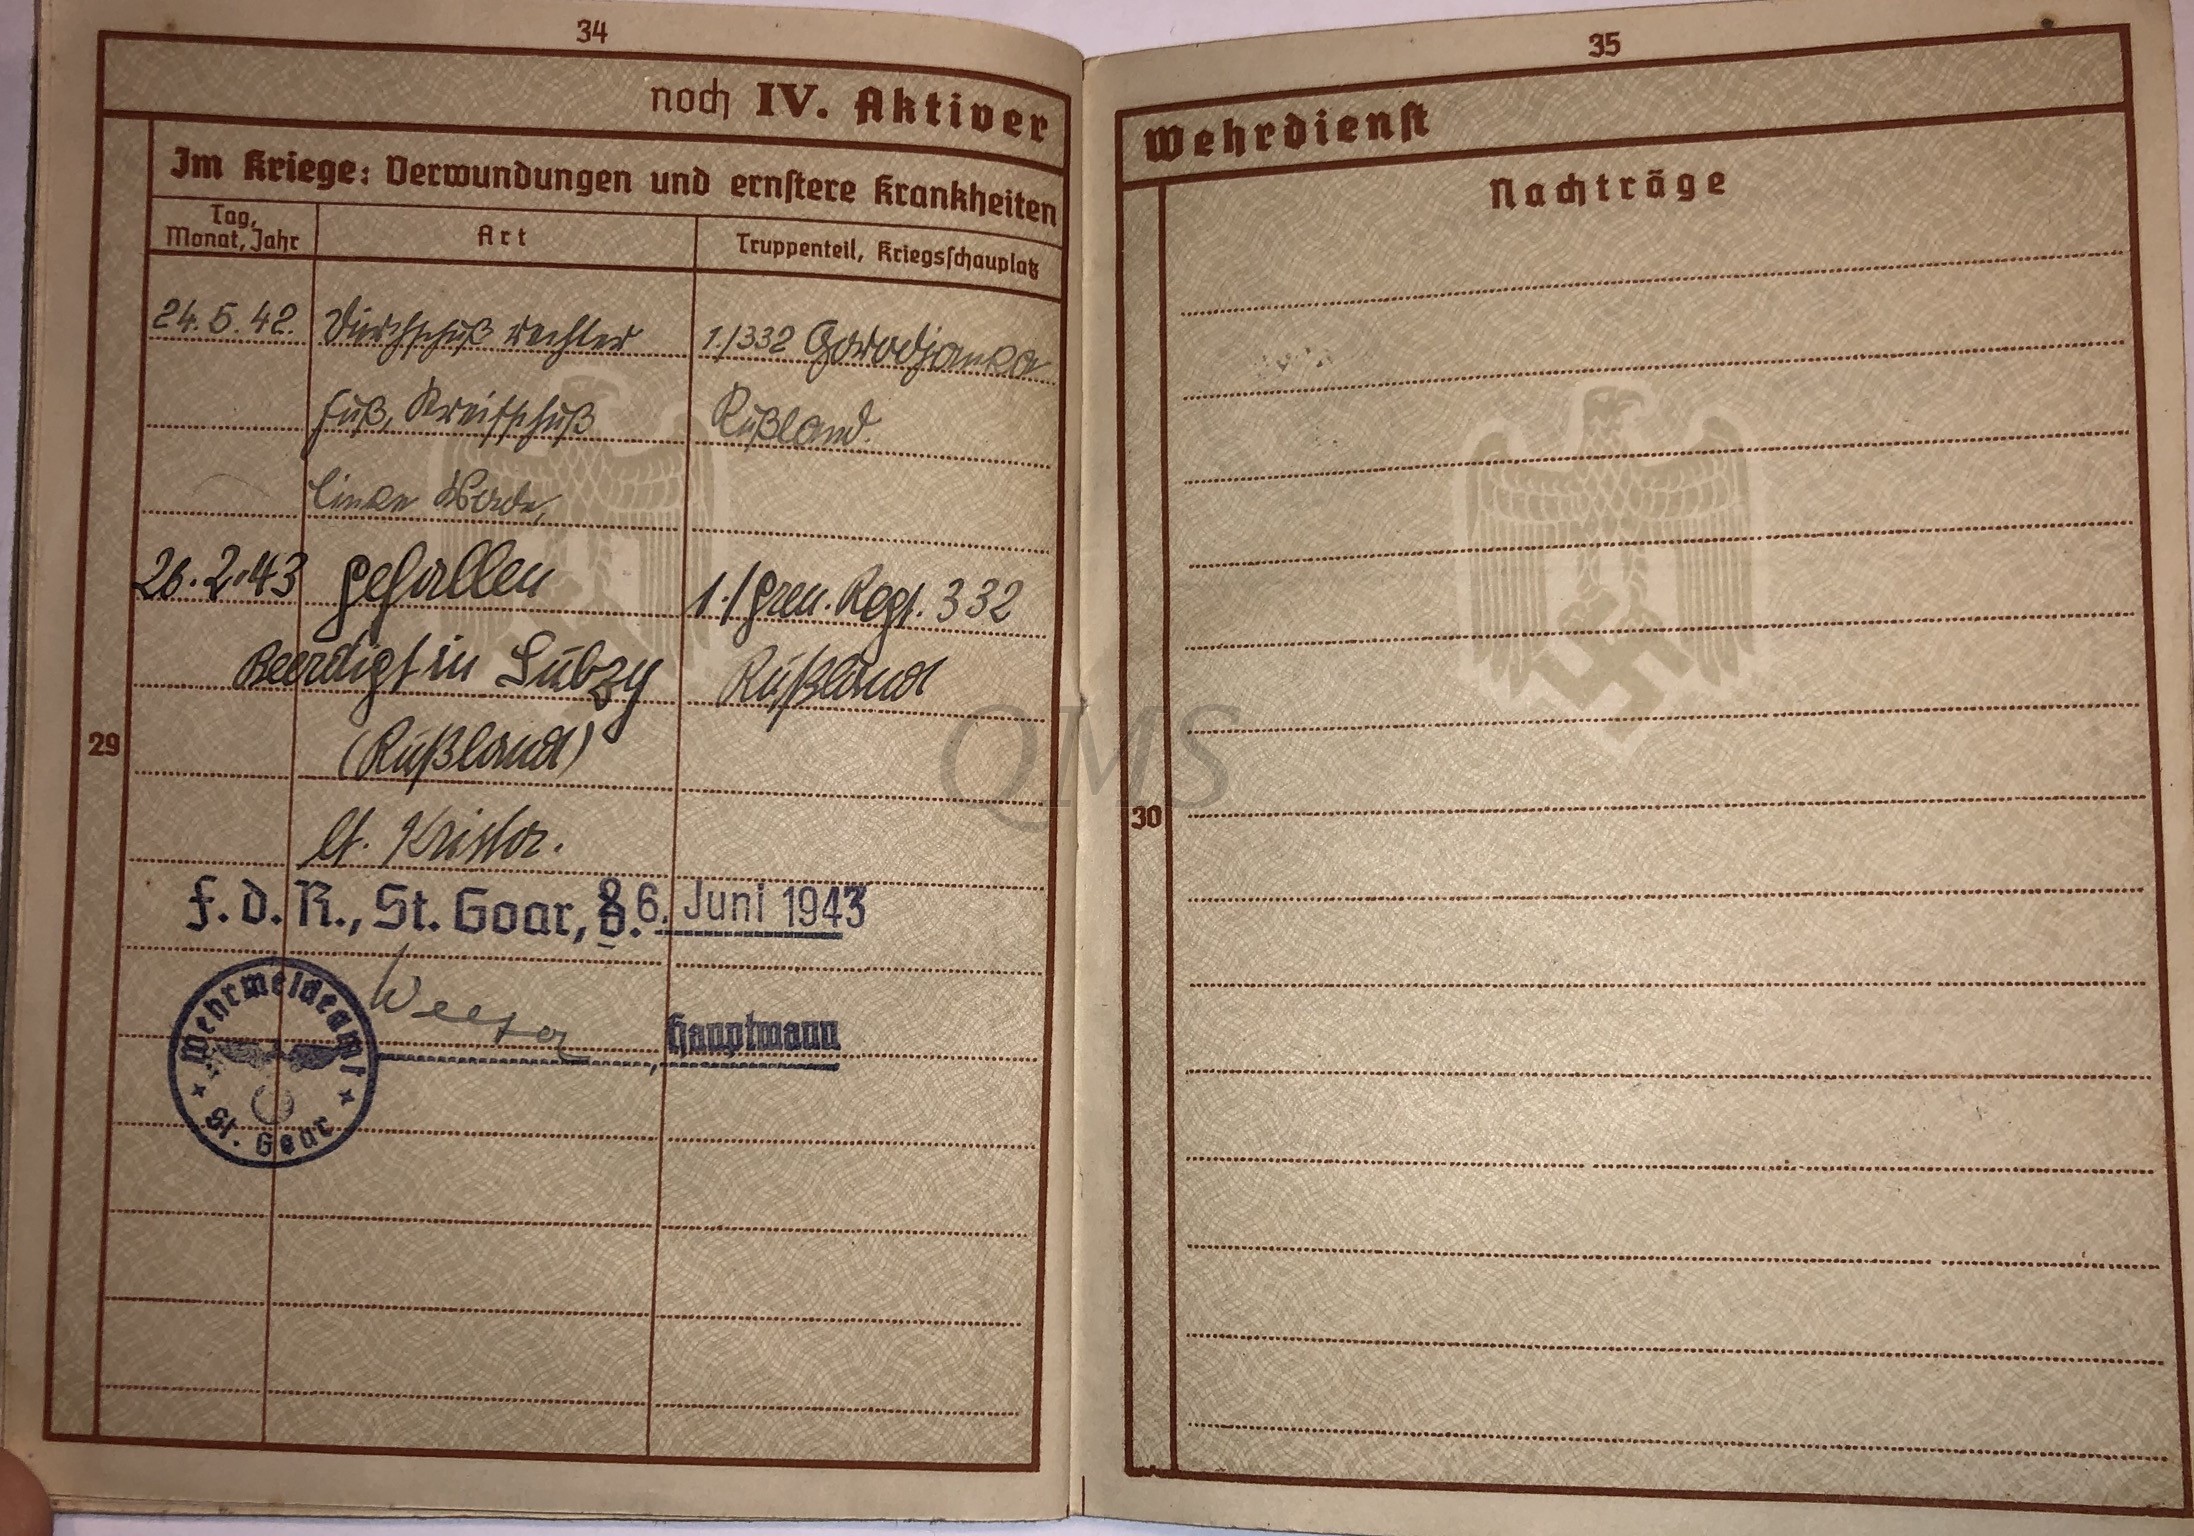 34
noch IV. Aktiver
Im Kriege: Verwundungen und ernstere Krankheiten
Tag, Monat, Jahr
Art
Truppenteil, Kriegsschauplatz
24.5.42. Durchschuß rechter 1./332 Gorodjanka
Fuß, Streifschuß Rußland.
linke Wade,
26.2.43 gefallen 1./Gren. Regt. 332
Beerdigt in Lubzy Rußland
(Rußland)
29
lt.
F. d. R., St. Goar, 6. Juni 1943
Hauptmann
Wehrmeldeamt
St. Goar
35
Wehrdienst
Nachträge
30
QMS